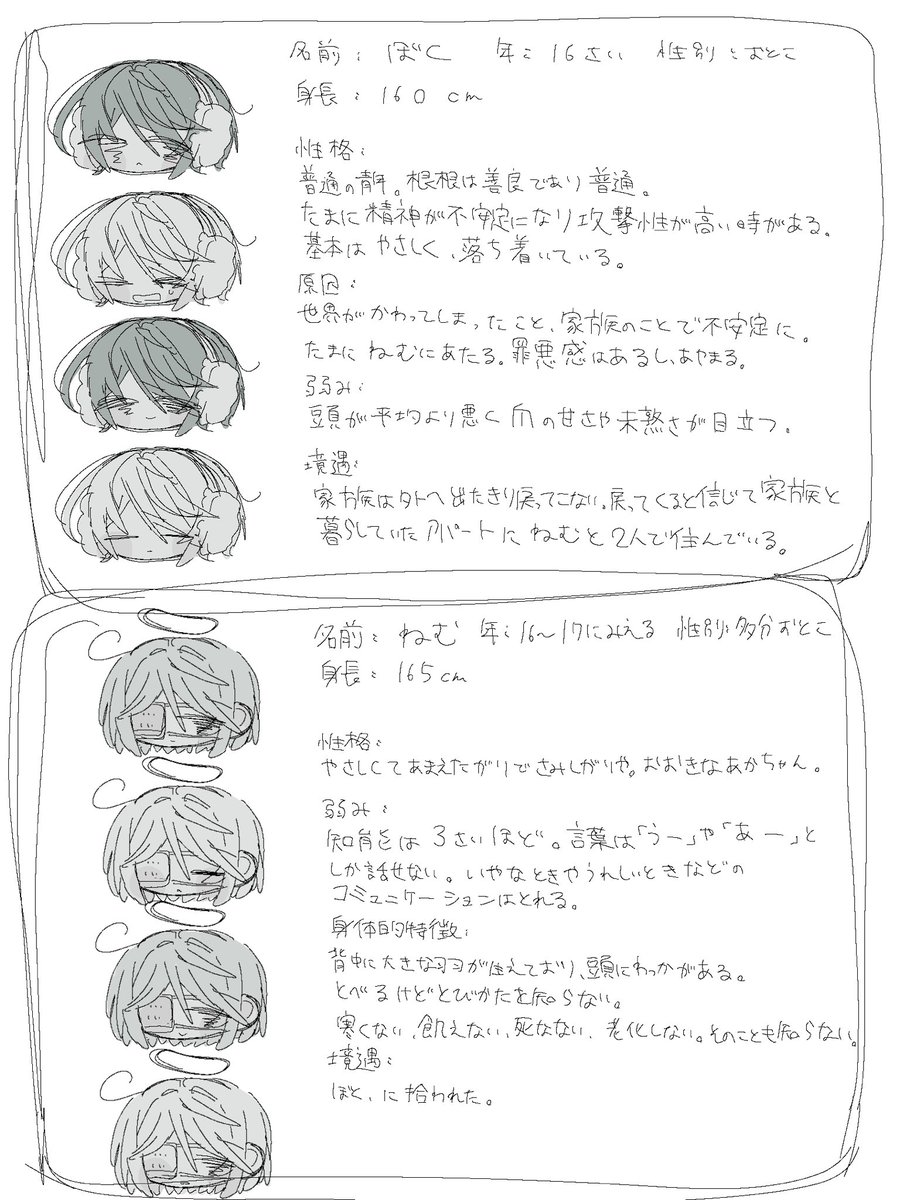 名前：ぼく 年：16さい 性別：おとこ
身長：160cm
性格：
普通の青年。根根は善良であり普通。
たまに精神が不安定になり攻撃性が高い時がある。
基本はやさしく、落ち着いている。
原因：
世界がかわってしまったこと、家族のことで不安定に。
たまにねむにあたる。罪悪感はあるし、あやまる。
弱み：
頭が平均より悪く爪の甘さや未熟さが目立つ。
境遇：
家族は外へ出たきり戻ってこない。戻ってくると信じて家族と
暮らしていたアパートにねむと2人で住んでいる。
名前：ねむ 年：16〜17にみえる 性別：多分おとこ
身長：165cm
性格：
やさしくてあまえたがりでさみしがりや。おおきなあかちゃん。
弱み：
知能は3さいほど。言葉は「うー」や「あー」と
しか話せない。いやなときやうれしいときなどの
コミュニケーションはとれる。
身体的特徴：
背中に大きな羽が生えており、頭にわっかがある。
とべるけどとびかたを知らない。
寒くない、飢えない、死なない、老化しない。そのことも知らない。
境遇：
ぼく、に拾われた。